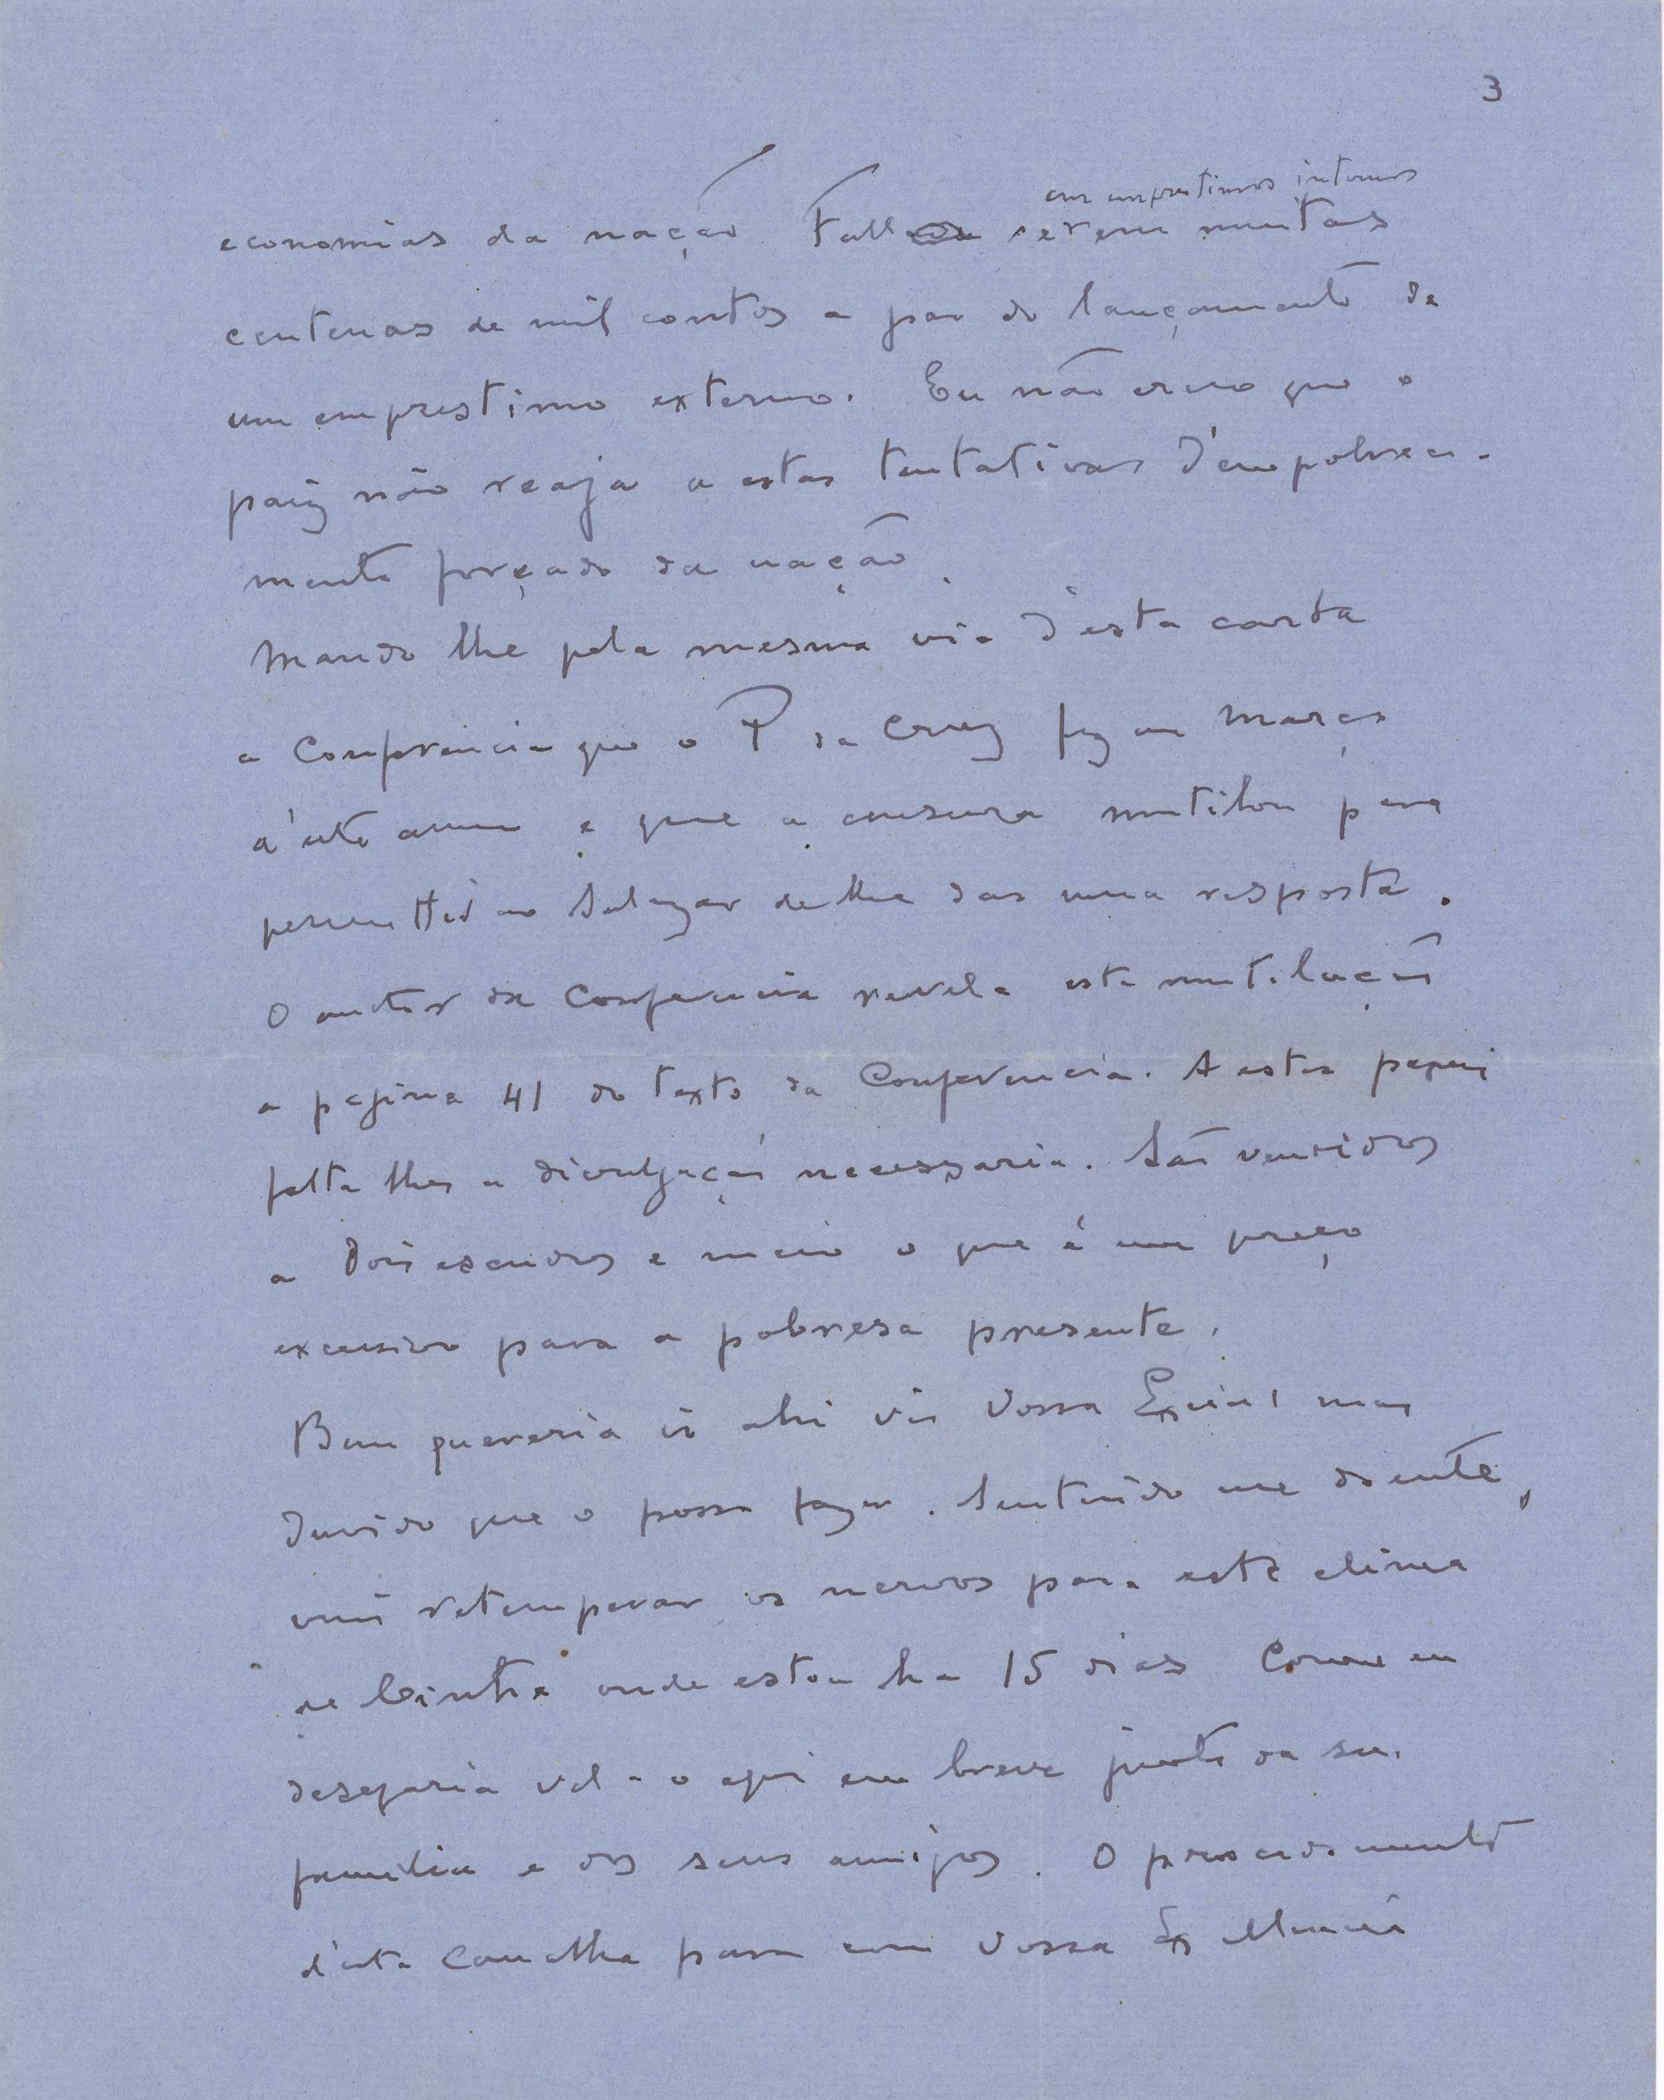 3
em emprestimos internos
economias da nação. Falla serem muitas
centenas de mil contos a par do lançamento de
um emprestimo externo. Eu não creio que o
paiz não reaja a estas tentativas d'empobreci-
mento forçado da nação.
Mando lhe pela mesma via d'esta carta
a Conferencia que o P da Cruz fez em Março
d'este anno e que a censura mutilou para
permittir ao Salazar de lhe dar uma resposta.
O auctor da Conferencia revela esta mutilação
a pagina 41 do texto da Conferencia. A estes papeis
falta lhes a divulgação necessaria. São vendidos
a dois escudos e meio o que é um preço
excessivo para a pobresa presente.
Bem quereria ir ahi vêr Vossa Excia, mas
duvido que o possa fazer. Sentindo me doente,
vim retemperar os nervos para este clima
de Cintra onde estou ha 15 dias Como eu
desejaria vel-o aqui em breve junto da sua
familia e dos seus amigos. O procedimento
d'esta canalha para com Vossa Excellencia